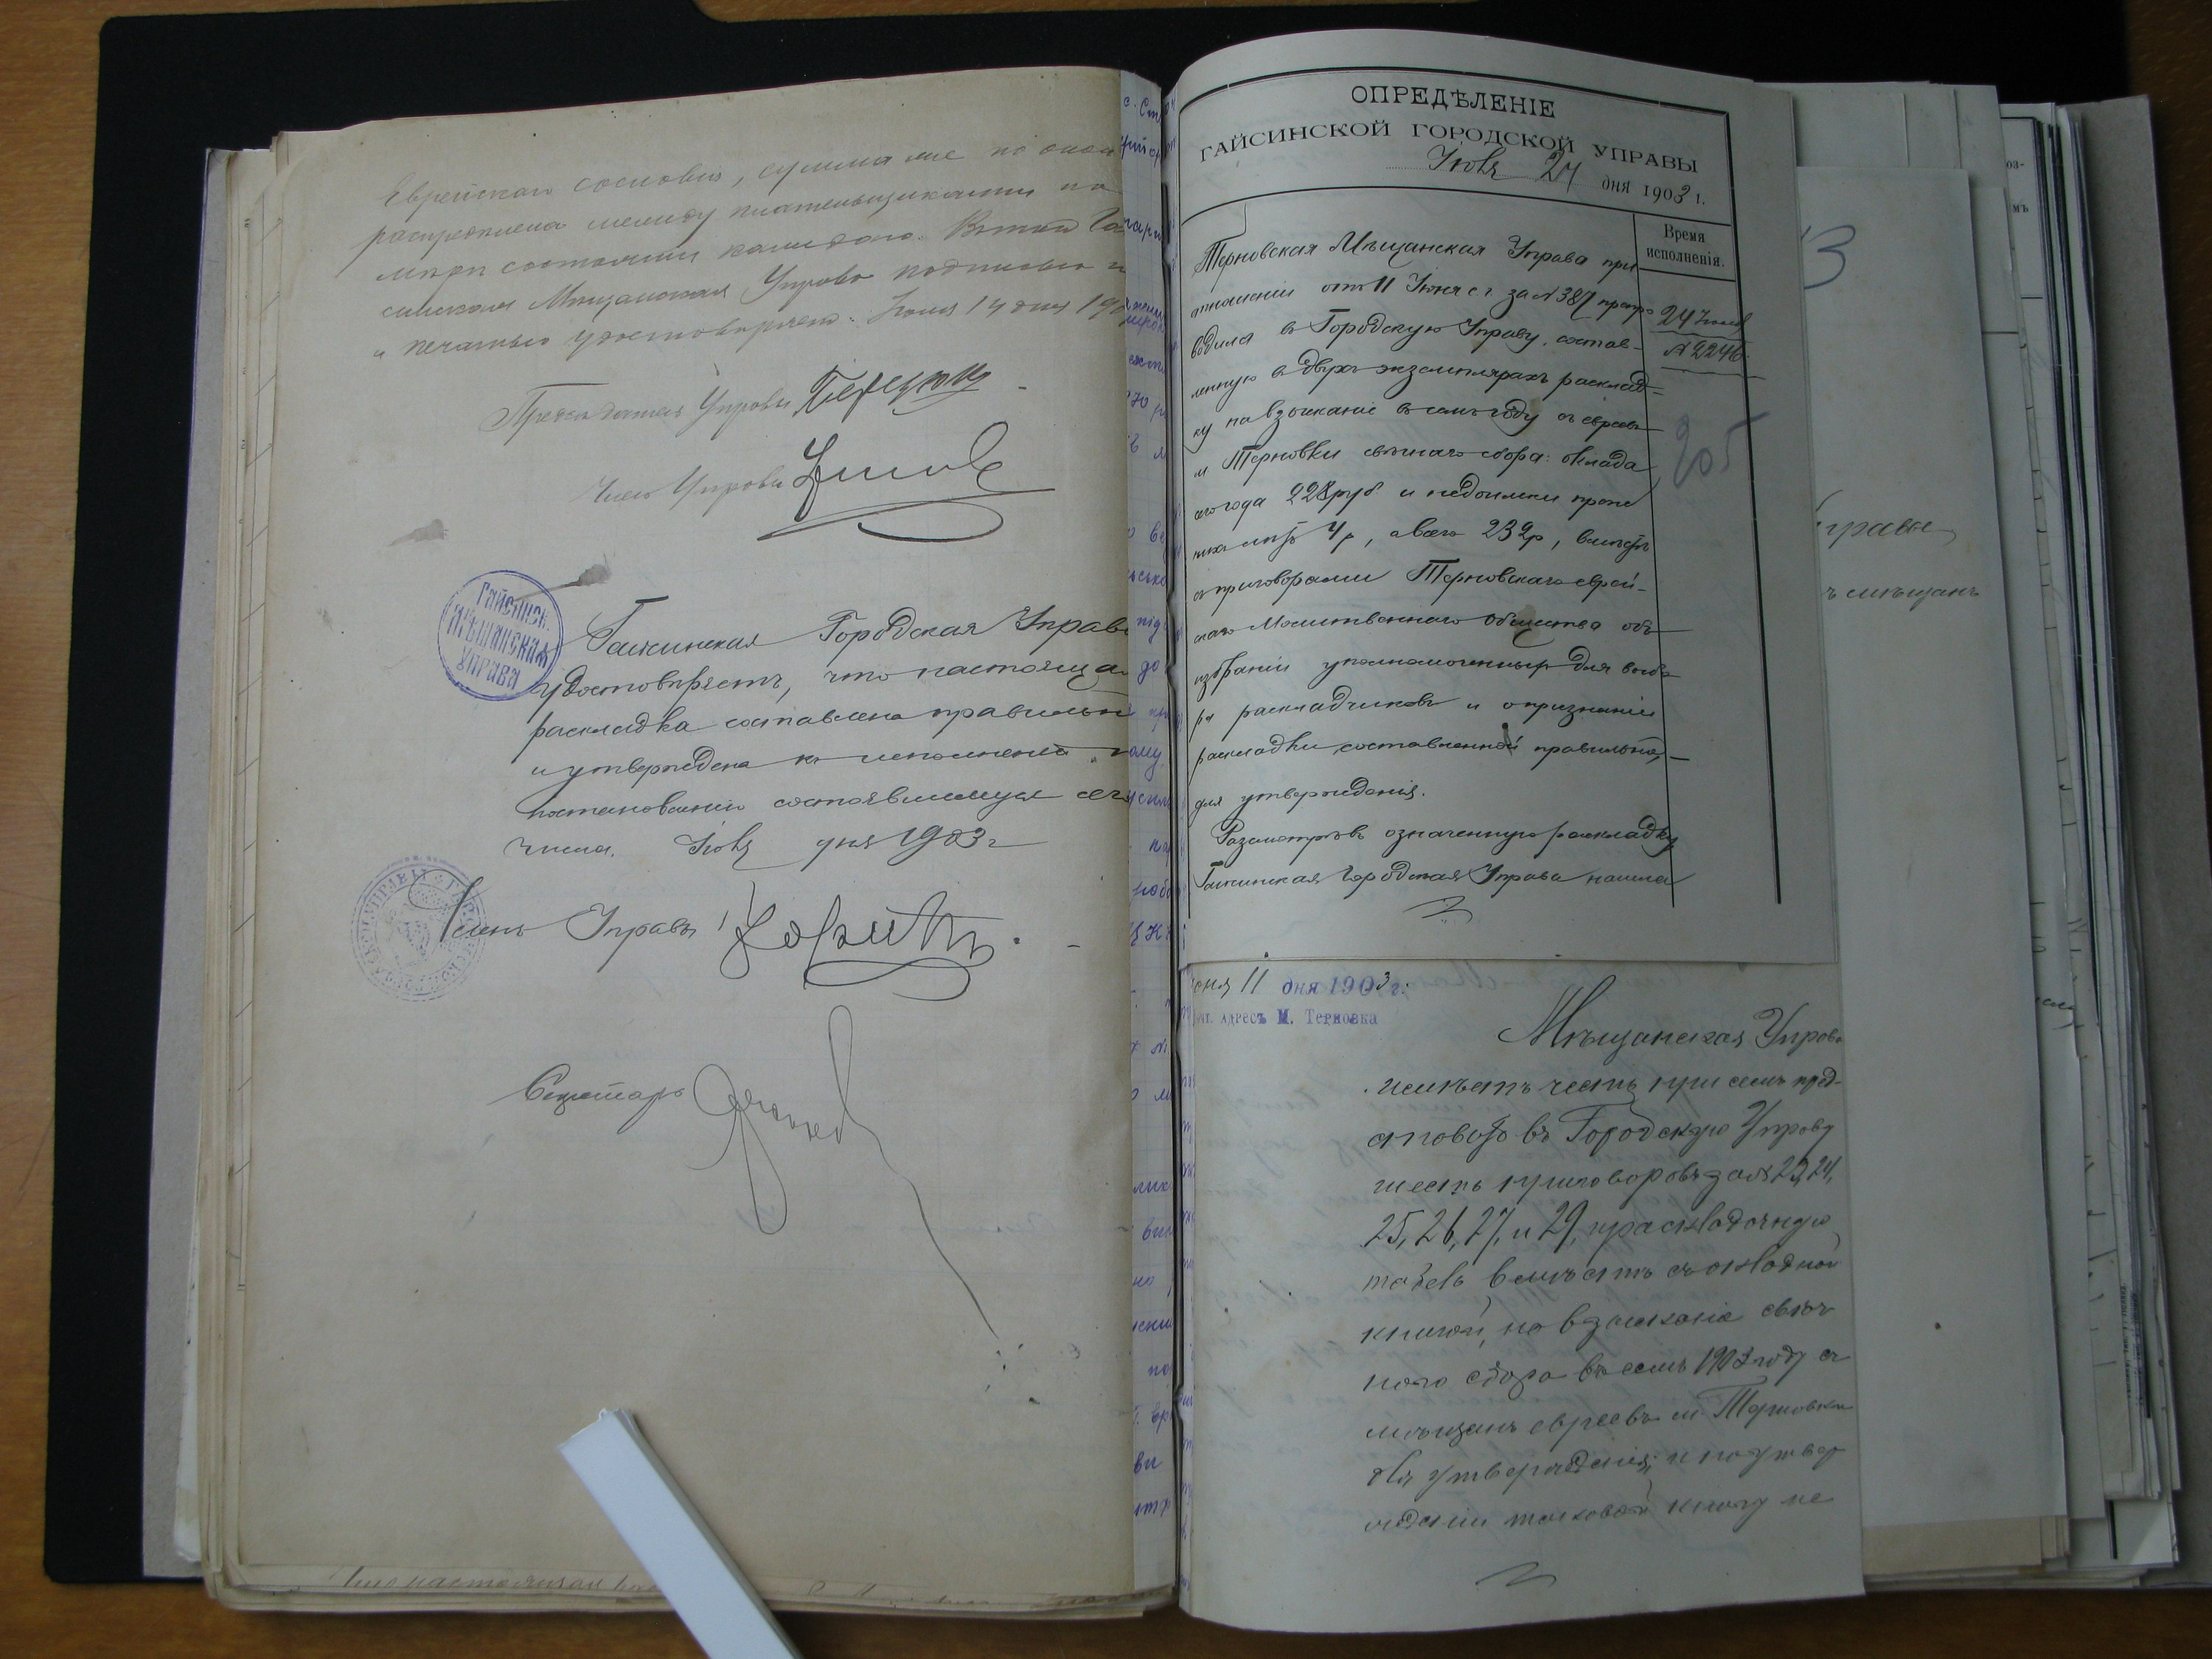 Еврейскаго сословія, сумма же по оной
распредѣлена между плательщиками по
мѣрѣ состоянія каждаго. Въ томъ Гай
синская Мѣщанская Управа подписью
и печатью удостовѣряетъ. Іюня 14 дня 190
Предсѣдатель Управы
Членъ Управы
Гайсинск.
Мѣщанская
Управа
Гайсинская Городская Управа
удостовѣряетъ, что настоящая
раскладка составлена правильно
и утверждена къ исполненію, по
постановленію состоявшемуся сего
числа. Іюня дня 1903 г
Членъ Управы
Секретарь
ОПРЕДѢЛЕНІЕ
ГАЙСИНСКОЙ ГОРОДСКОЙ УПРАВЫ
Іюня 24 дня 1903 г.
Время
исполненія.
24 Іюня
№ 2246
205
Терновская Мѣщанская Управа при
отношеніи отъ 11 Іюня с. г. за № 387 препро
водила въ Городскую Управу, состав-
ленную въ двухъ экземплярахъ расклад-
ку на взысканіе въ семъ году съ евреевъ
м Терновки свѣчнаго сбора: оклада
сего года 228 руб и недоимки преж
нихъ лѣтъ 4 р, а всего 232 р, вмѣстѣ
съ приговорами Терновскаго еврей-
скаго Молитвеннаго Общества объ
избраніи уполномоченныхъ для выбо-
ра раскладчиковъ и о признаніи
раскладки, составленной правильно,
для утвержденія.
Разсмотрѣвъ означенную раскладку
Гайсинская Городская Управа нашла
юня 11 дня 1903 г.
чт. Адресъ М. Терновка
Мѣщанская Управа
имѣетъ честь при семъ пред-
ставить въ Городскую Управу
шесть приговоровъ за № 23, 24,
25, 26, 27, и 29, и раскладочную
табель вмѣстѣ съ окладной
книгой, на взысканіе свѣч
наго сбора въ семъ 1903 году съ
мѣщанъ евреевъ м Терновки
для утвержденія; и по утвер
жденіи таковой книгу не